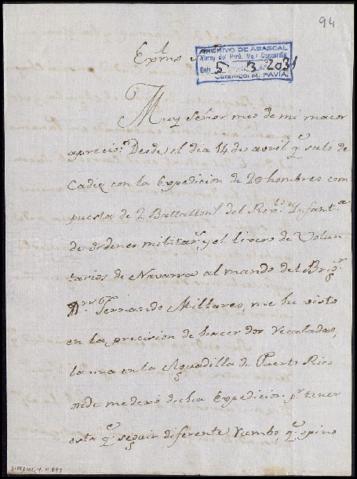 94
Exmo
ARCHIVO DE ABASCAL
5 3 2031
Muy Señor mio de mi maior
aprecio: Desde el dia 14 de avril q.e sali de
Cadiz con la Expedicion de 20 hombres com
puesta de 2 Battallon.s del Rexto Infant.a
de ordenes militar.s y el tercero de Volun
tarios de Navarra al mando del Brigr.
Dn Fernando Millares, me he visto
en la precision de hacer dos recaladas,
la una en la Aguadilla de Puerto Rico
onde me dexó dicha Expedicion pr tener
esta q.e seguir diferente rumbo q.e